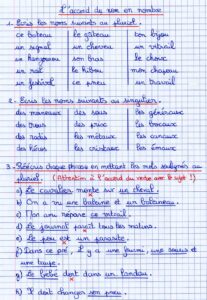 L'accord du nom en nombre
1. Ecris les noms suivants au pluriel.
ce bateau le gâteau ton bijou
un signal un cheveu un vitrail
un kangourou son bras le choux
un rail le hibou mon chapeau
un festival ce pneu un travail
2. Ecris les noms suivants au singulier.
des morceaux des sous les généraux
des trous des prix les travaux
des radis les métaux les canaux
des héros les cristaux les émaux
3. Réécris chaque phrase en mettant les mots soulignés au
pluriel. (Attention à l'accord du verbe avec le sujet !)
a) Le cavalier monte sur un cheval.
b) On a vu une baleine et un baleineau.
c) Mon ami répare ce vitrail.
d) Le journal paraît tous les matins.
e) Le pou est un parasite.
f) Dans ce pré, il y a une fourmi, une souris et
une taupe.
g) Le bébé dort dans un landau.
h) Il doit changer son pneu.